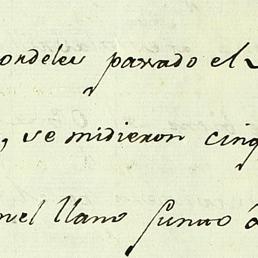 ordeles passado el
, se midieron cinq
nel llano junto á